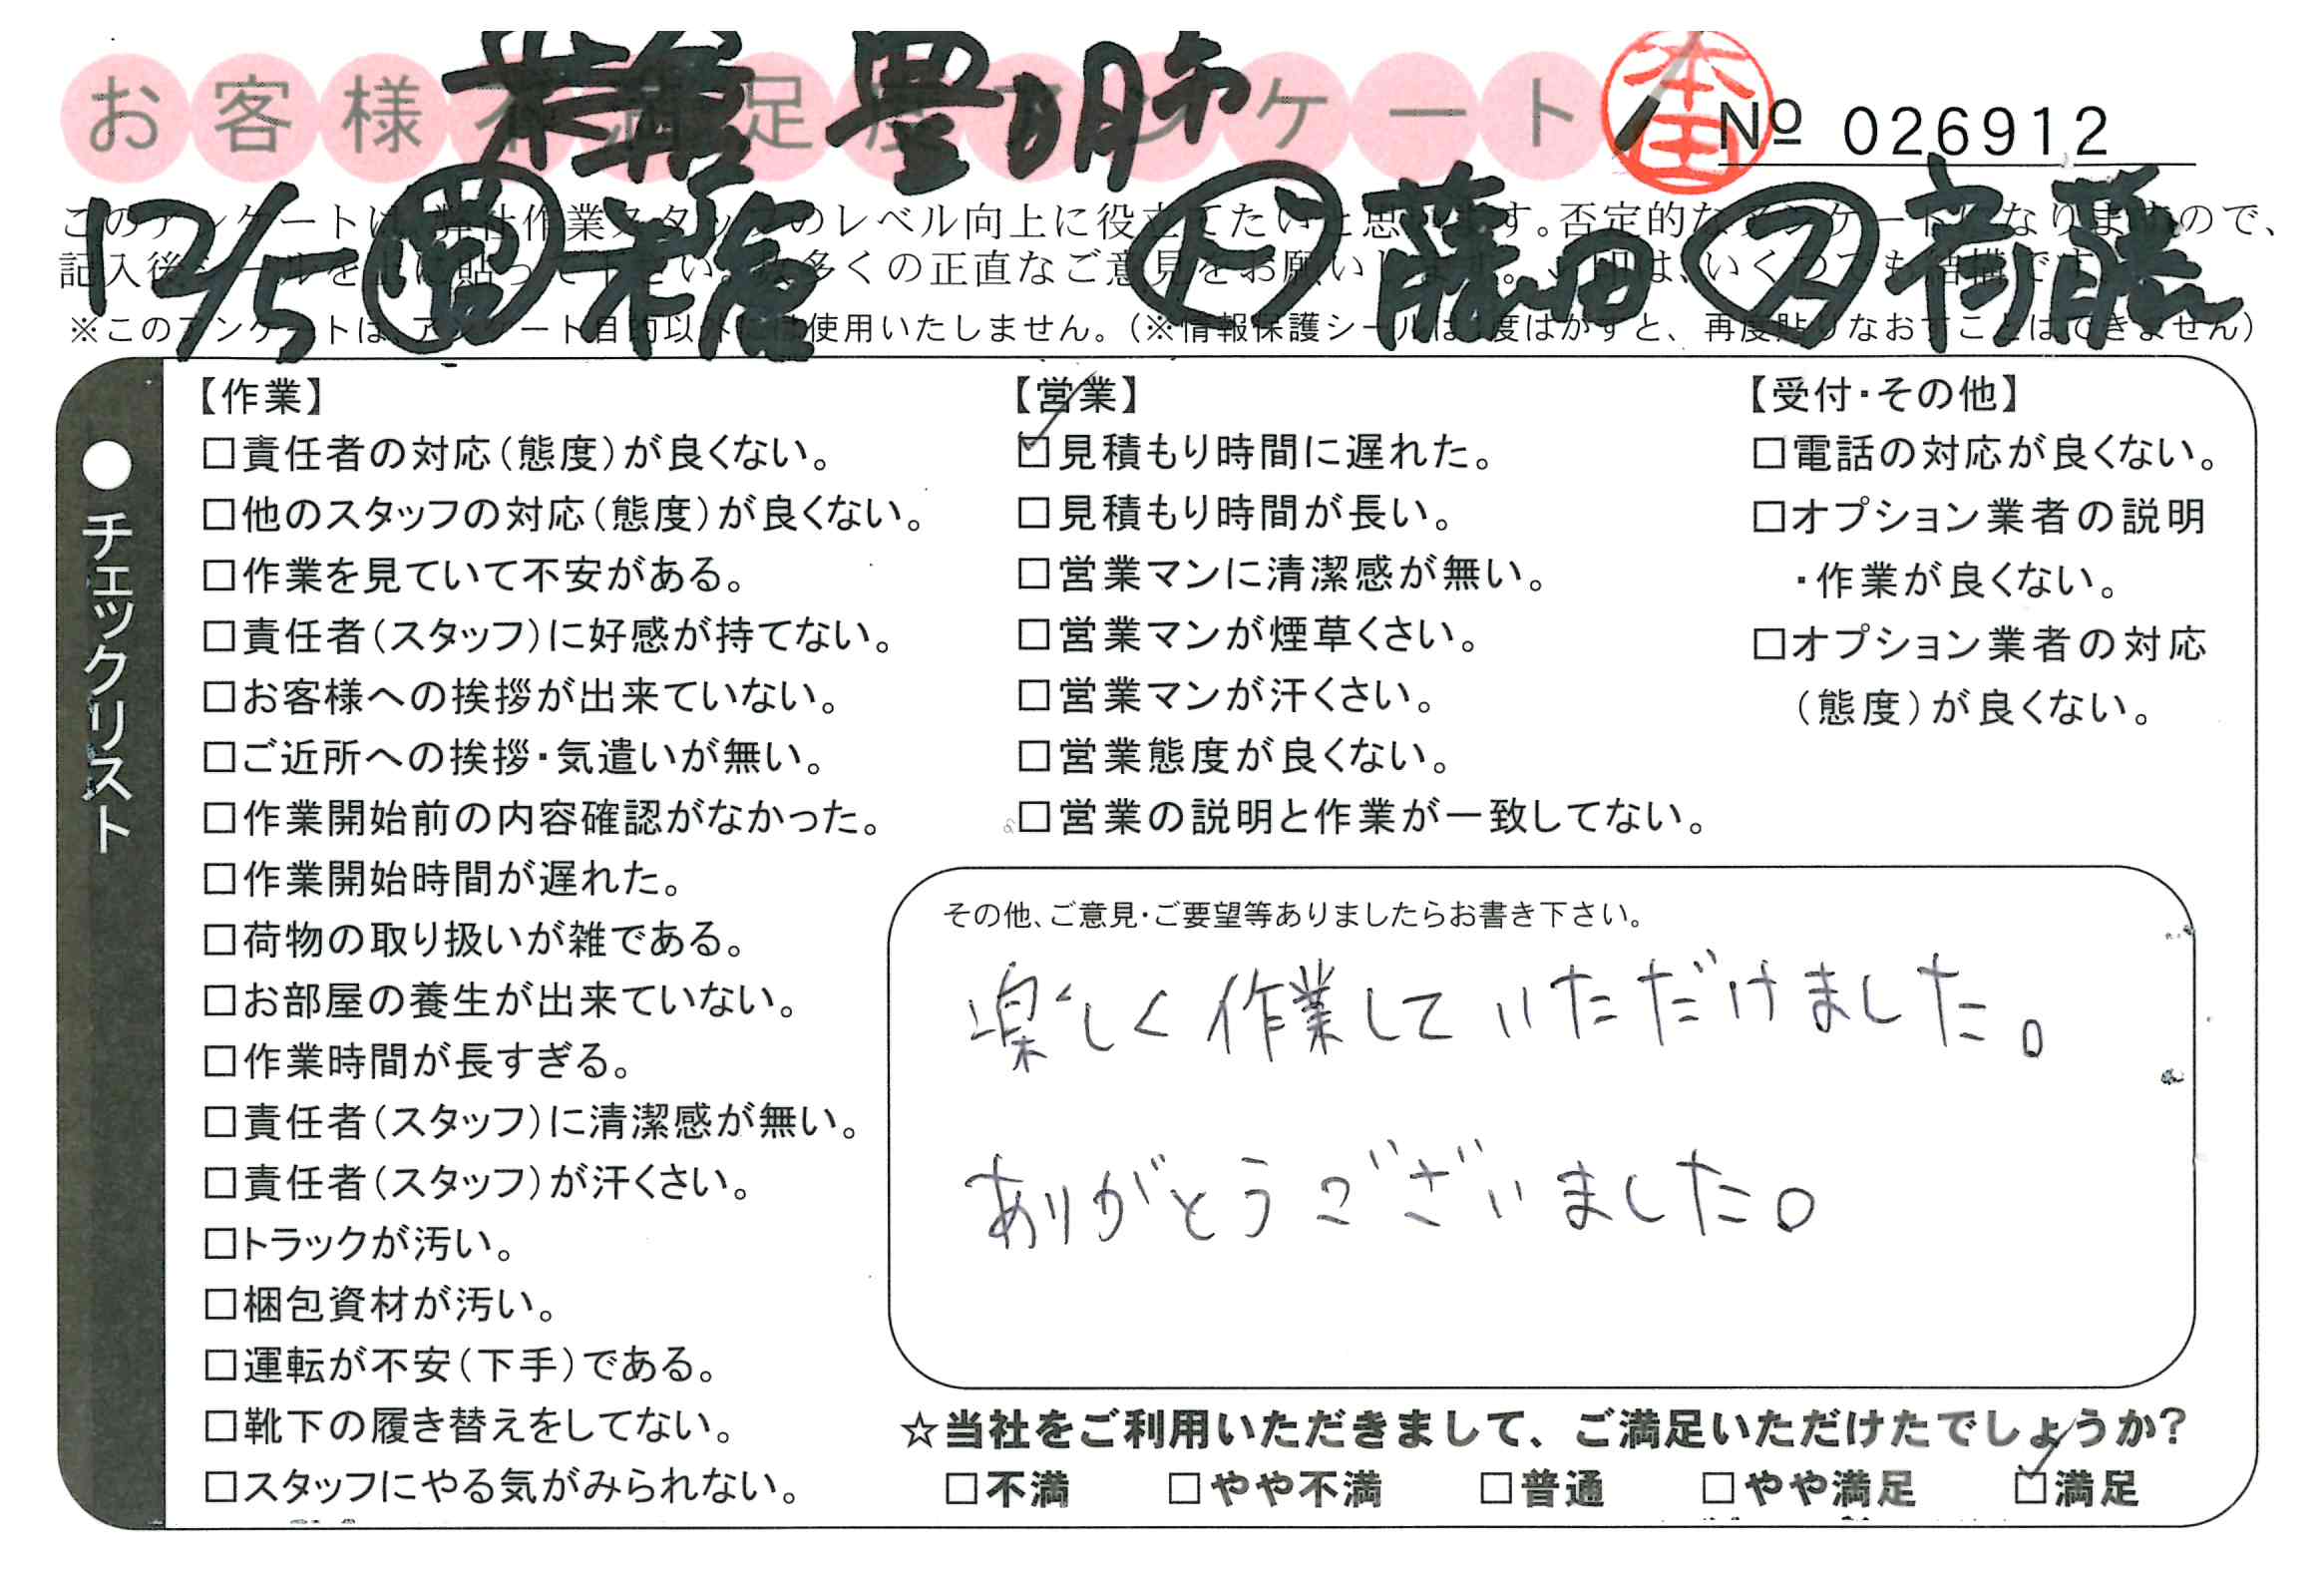 お客様不満足度アンケート
豊明市
本田
№ 026912
12/5 営 ト 藤田 ス 斉藤
このアンケートは、弊社作業スタッフのレベル向上に役立てたいと思います。否定的なアンケートになりますので、
記入後シールを上に貼って下さい。数多くの正直なご意見をお願いします。
※このアンケートは、アンケート目的以外には使用いたしません。(※情報保護シールは1度はがすと、再度貼りなおすことはできません)
●チェックリスト
【作業】
□責任者の対応(態度)が良くない。
□他のスタッフの対応(態度)が良くない。
□作業を見ていて不安がある。
□責任者(スタッフ)に好感が持てない。
□お客様への挨拶が出来ていない。
□ご近所への挨拶・気遣いが無い。
□作業開始前の内容確認がなかった。
□作業開始時間が遅れた。
□荷物の取り扱いが雑である。
□お部屋の養生が出来ていない。
□作業時間が長すぎる。
□責任者(スタッフ)に清潔感が無い。
□責任者(スタッフ)が汗くさい。
□トラックが汚い。
□梱包資材が汚い。
□運転が不安(下手)である。
□靴下の履き替えをしてない。
□スタッフにやる気がみられない。
【営業】
☑見積もり時間に遅れた。
□見積もり時間が長い。
□営業マンに清潔感が無い。
□営業マンが煙草くさい。
□営業マンが汗くさい。
□営業態度が良くない。
□営業の説明と作業が一致してない。
【受付・その他】
□電話の対応が良くない。
□オプション業者の説明
・作業が良くない。
□オプション業者の対応
(態度)が良くない。
その他、ご意見・ご要望等ありましたらお書き下さい。
楽しく作業していただけました。
ありがとうございました。
☆当社をご利用いただきまして、ご満足いただけたでしょうか?
□不満 □やや不満 □普通 □やや満足 ☑満足